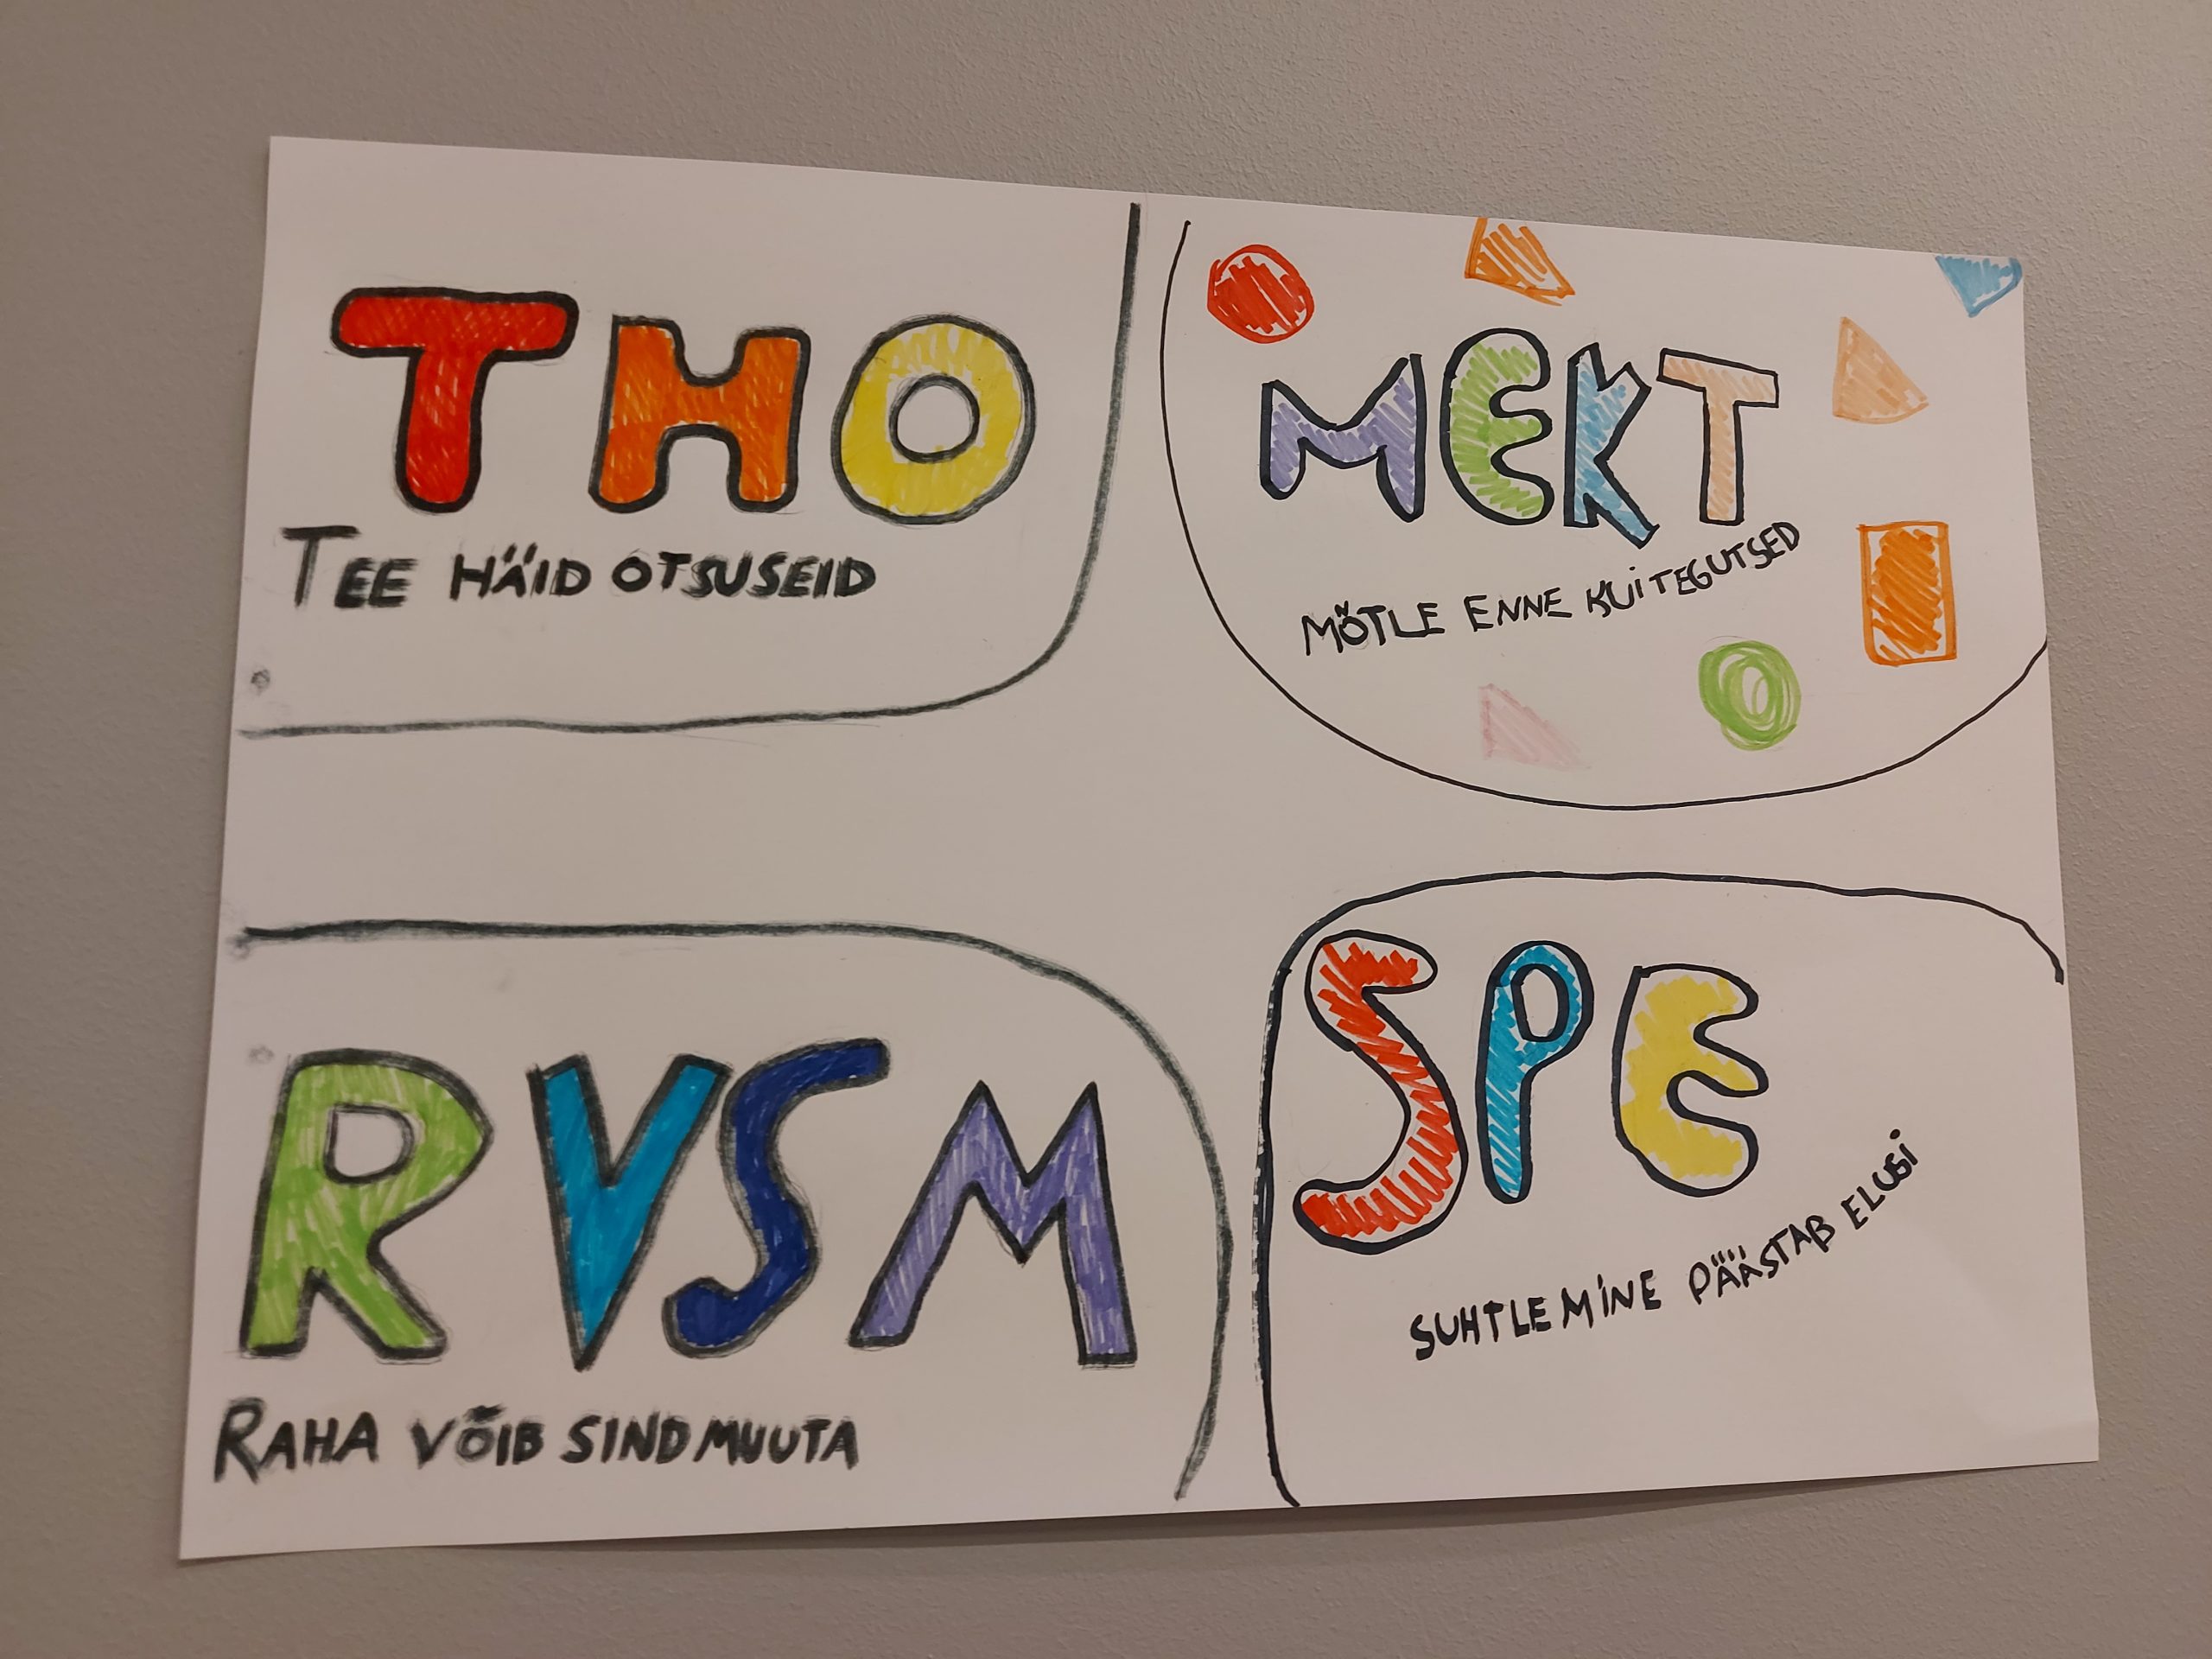 THO
TEE HÄID OTSUSEID
MEKT
MÕTLE ENNE KUI TEGUTSED
RVSM
RAHA VÕIB SIND MUUTA
SPE
SUHTLEMINE PÄÄSTAB ELUGI